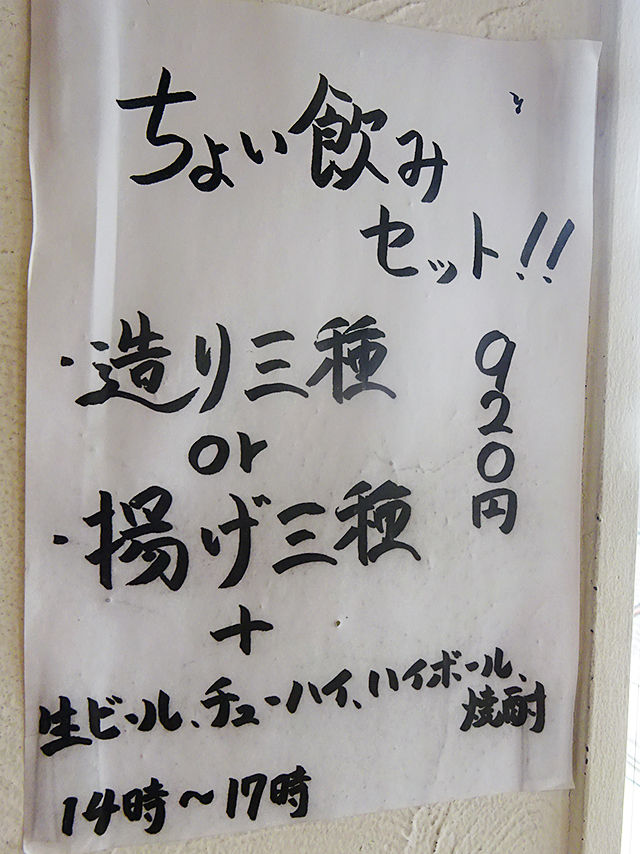 ちょい飲み
セット!!
・造り三種
or
・揚げ三種
920円
+
生ビール、チューハイ、ハイボール、
焼酎
14時〜17時